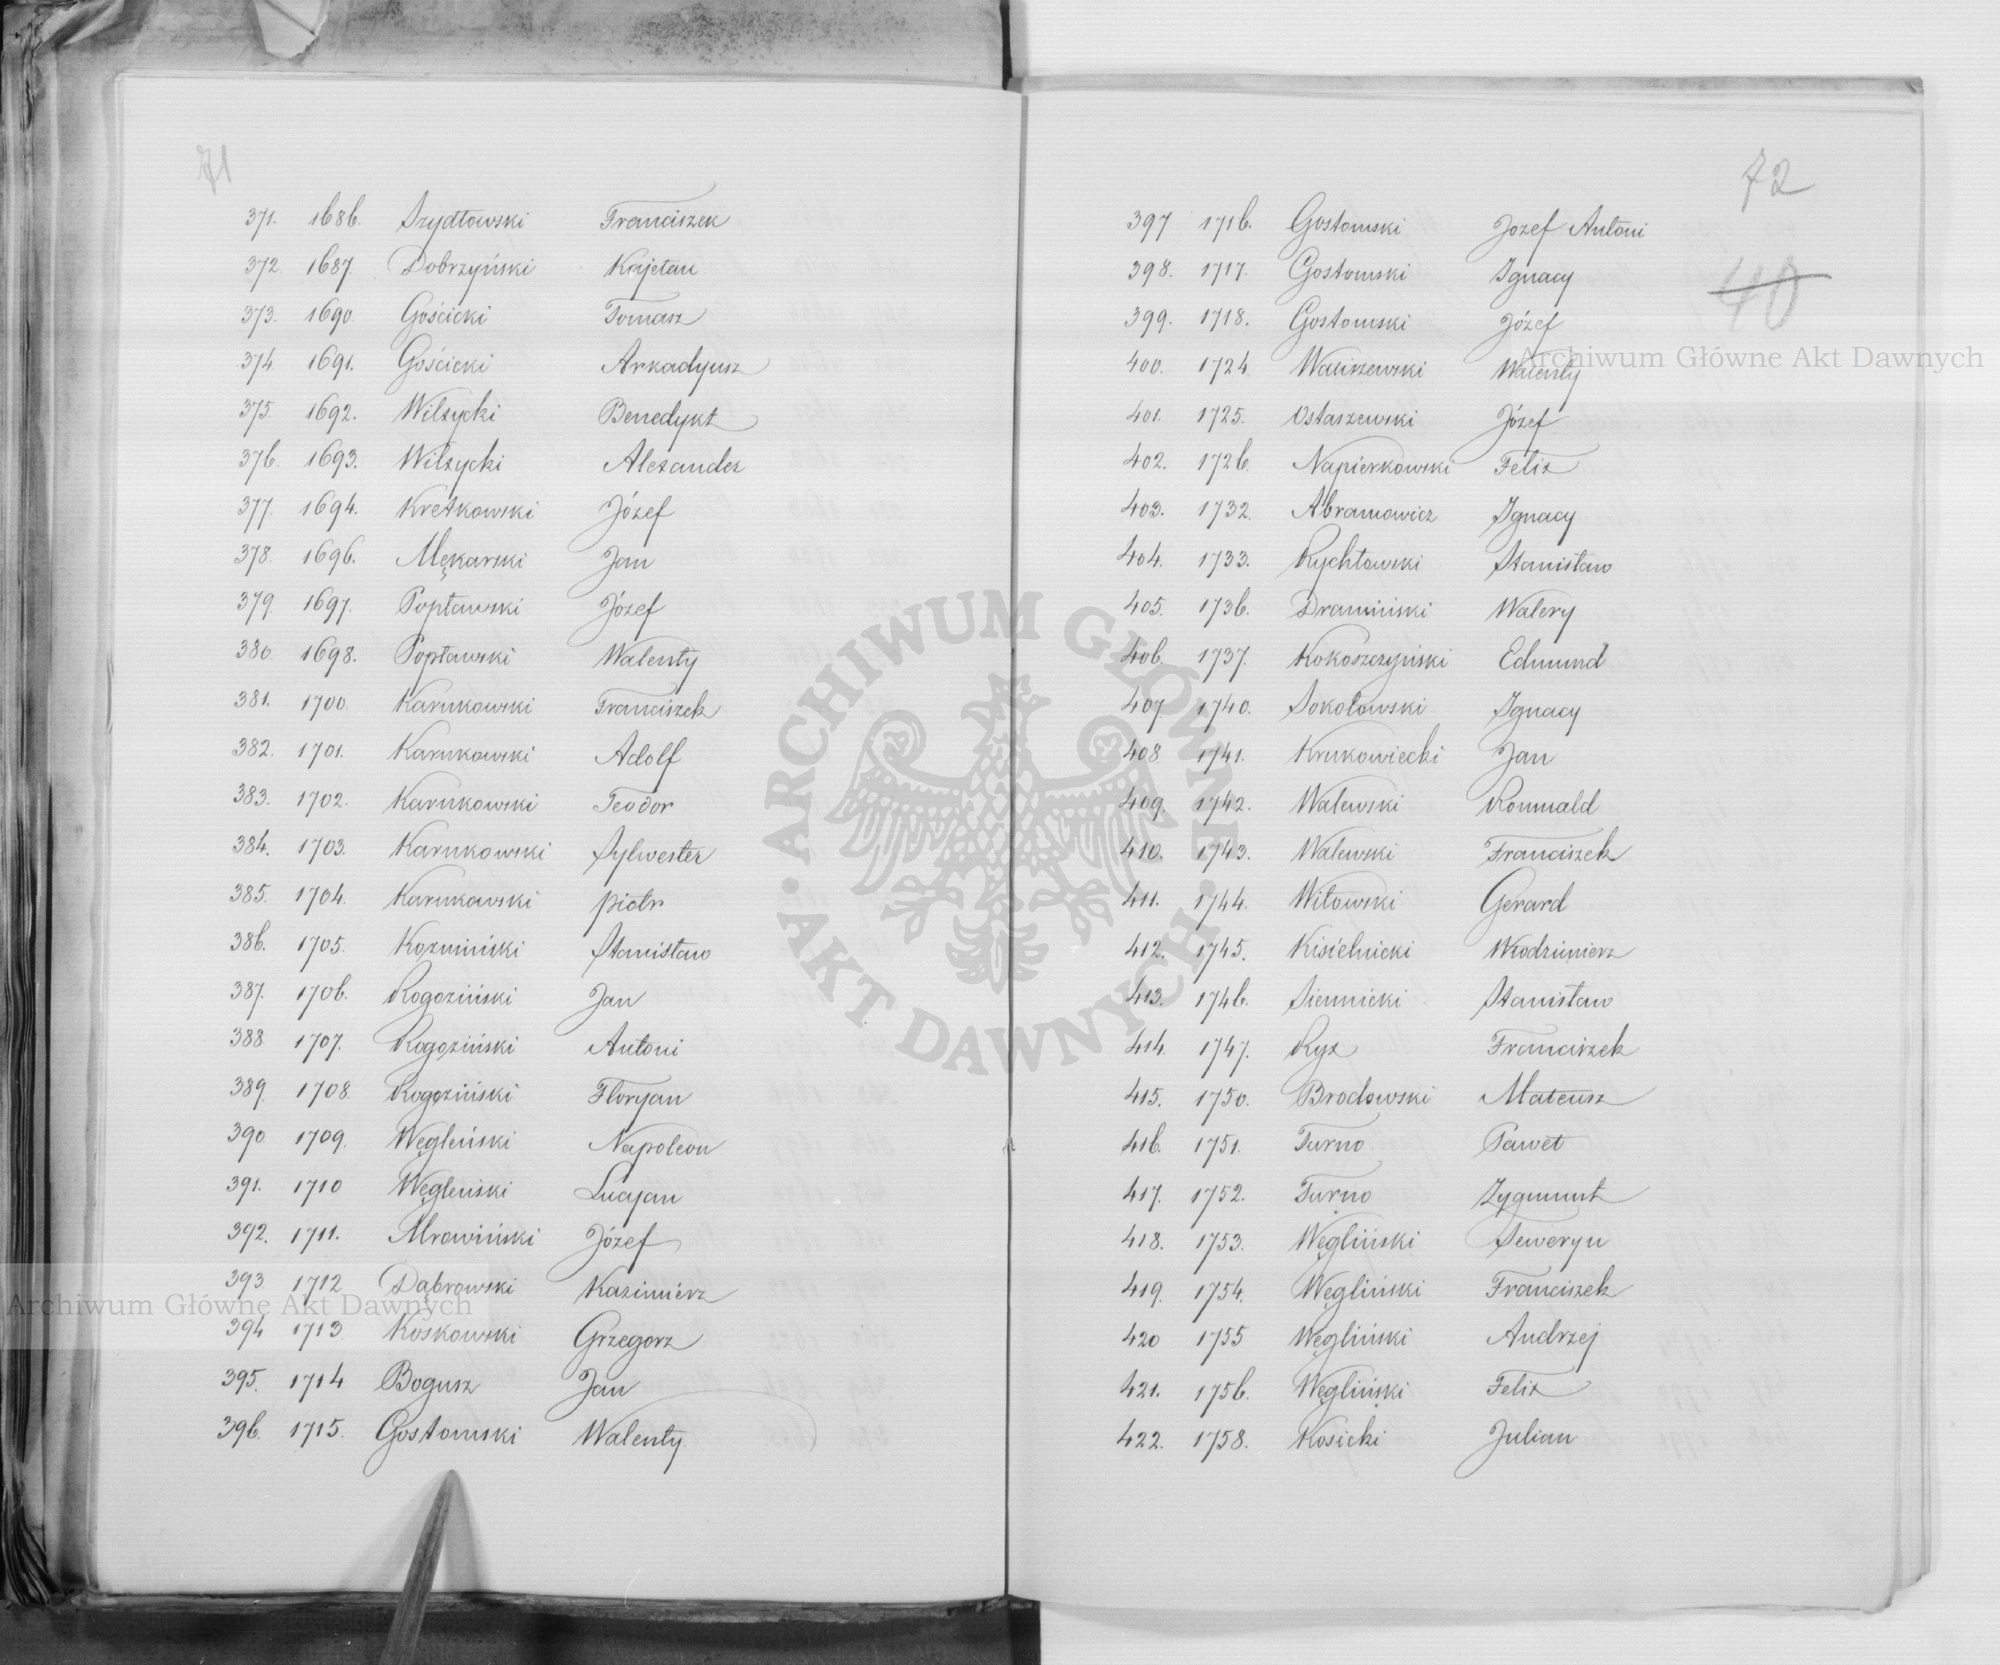 71
371. 1686. Szydłowski Franciszek
372. 1687. Dobrzyński Kajetan
373. 1690. Gościcki Tomasz
374. 1691. Gościcki Arkadyusz
375. 1692. Wilżycki Benedykt
376. 1693. Wilżycki Alexander
377. 1694. Kretkowski Józef
378. 1696. Mękarski Jan
379. 1697. Popławski Józef
380. 1698. Popławski Walenty
381. 1700. Karnkowski Franciszek
382. 1701. Karnkowski Adolf
383. 1702. Karnkowski Teodor
384. 1703. Karnkowski Sylwester
385. 1704. Karnkowski Piotr
386. 1705. Kozmiński Stanisław
387. 1706. Rogoziński Jan
388. 1707. Rogoziński Antoni
389. 1708. Rogoziński Floryan
390. 1709. Węgleński Napoleon
391. 1710 Węgleński Lucyan
392. 1711. Mrowiński Józef
393. 1712 Dąbrowski Kazimierz
394 1713 Koskowski Grzegorz
395. 1714 Bogusz Jan
396. 1715. Gostomski Walenty
72
40
397 1716. Gostomski Jozef Antoni
398. 1717. Gostomski Ignacy
399. 1718. Gostomski Józef
400. 1724 Waliszewski Walenty
401. 1725. Ostaszewski Józef
402. 1726. Napierkowski Felix
403. 1732. Abramowicz Ignacy
404. 1733. Rychłowski Stanisław
405. 1736. Dramiński Walery
406. 1737. Kokoszczyński Edmund
407 1740. Sokołowski Ignacy
408. 1741. Krukowiecki Jan
409. 1742. Walewski Romuald
410. 1743. Walewski Franciszek
411. 1744. Witowski Gerard
412. 1745. Kisielnicki Włodzimierz
413. 1746. Siennicki Stanisław
414. 1747. Ryx Franciszek
415. 1750. Brodowski Mateusz
416. 1751. Turno Paweł
417. 1752. Turno Zygmunt
418. 1753. Węgliński Seweryn
419. 1754. Węgliński Franciszek
420 1755 Węgliński Andrzej
421. 1756. Węgliński Felix
422. 1758. Kosicki Julian
Archiwum Główne Akt Dawnych
Archiwum Główne Akt Dawnych
ARCHIWUM GŁÓWNE AKT DAWNYCH